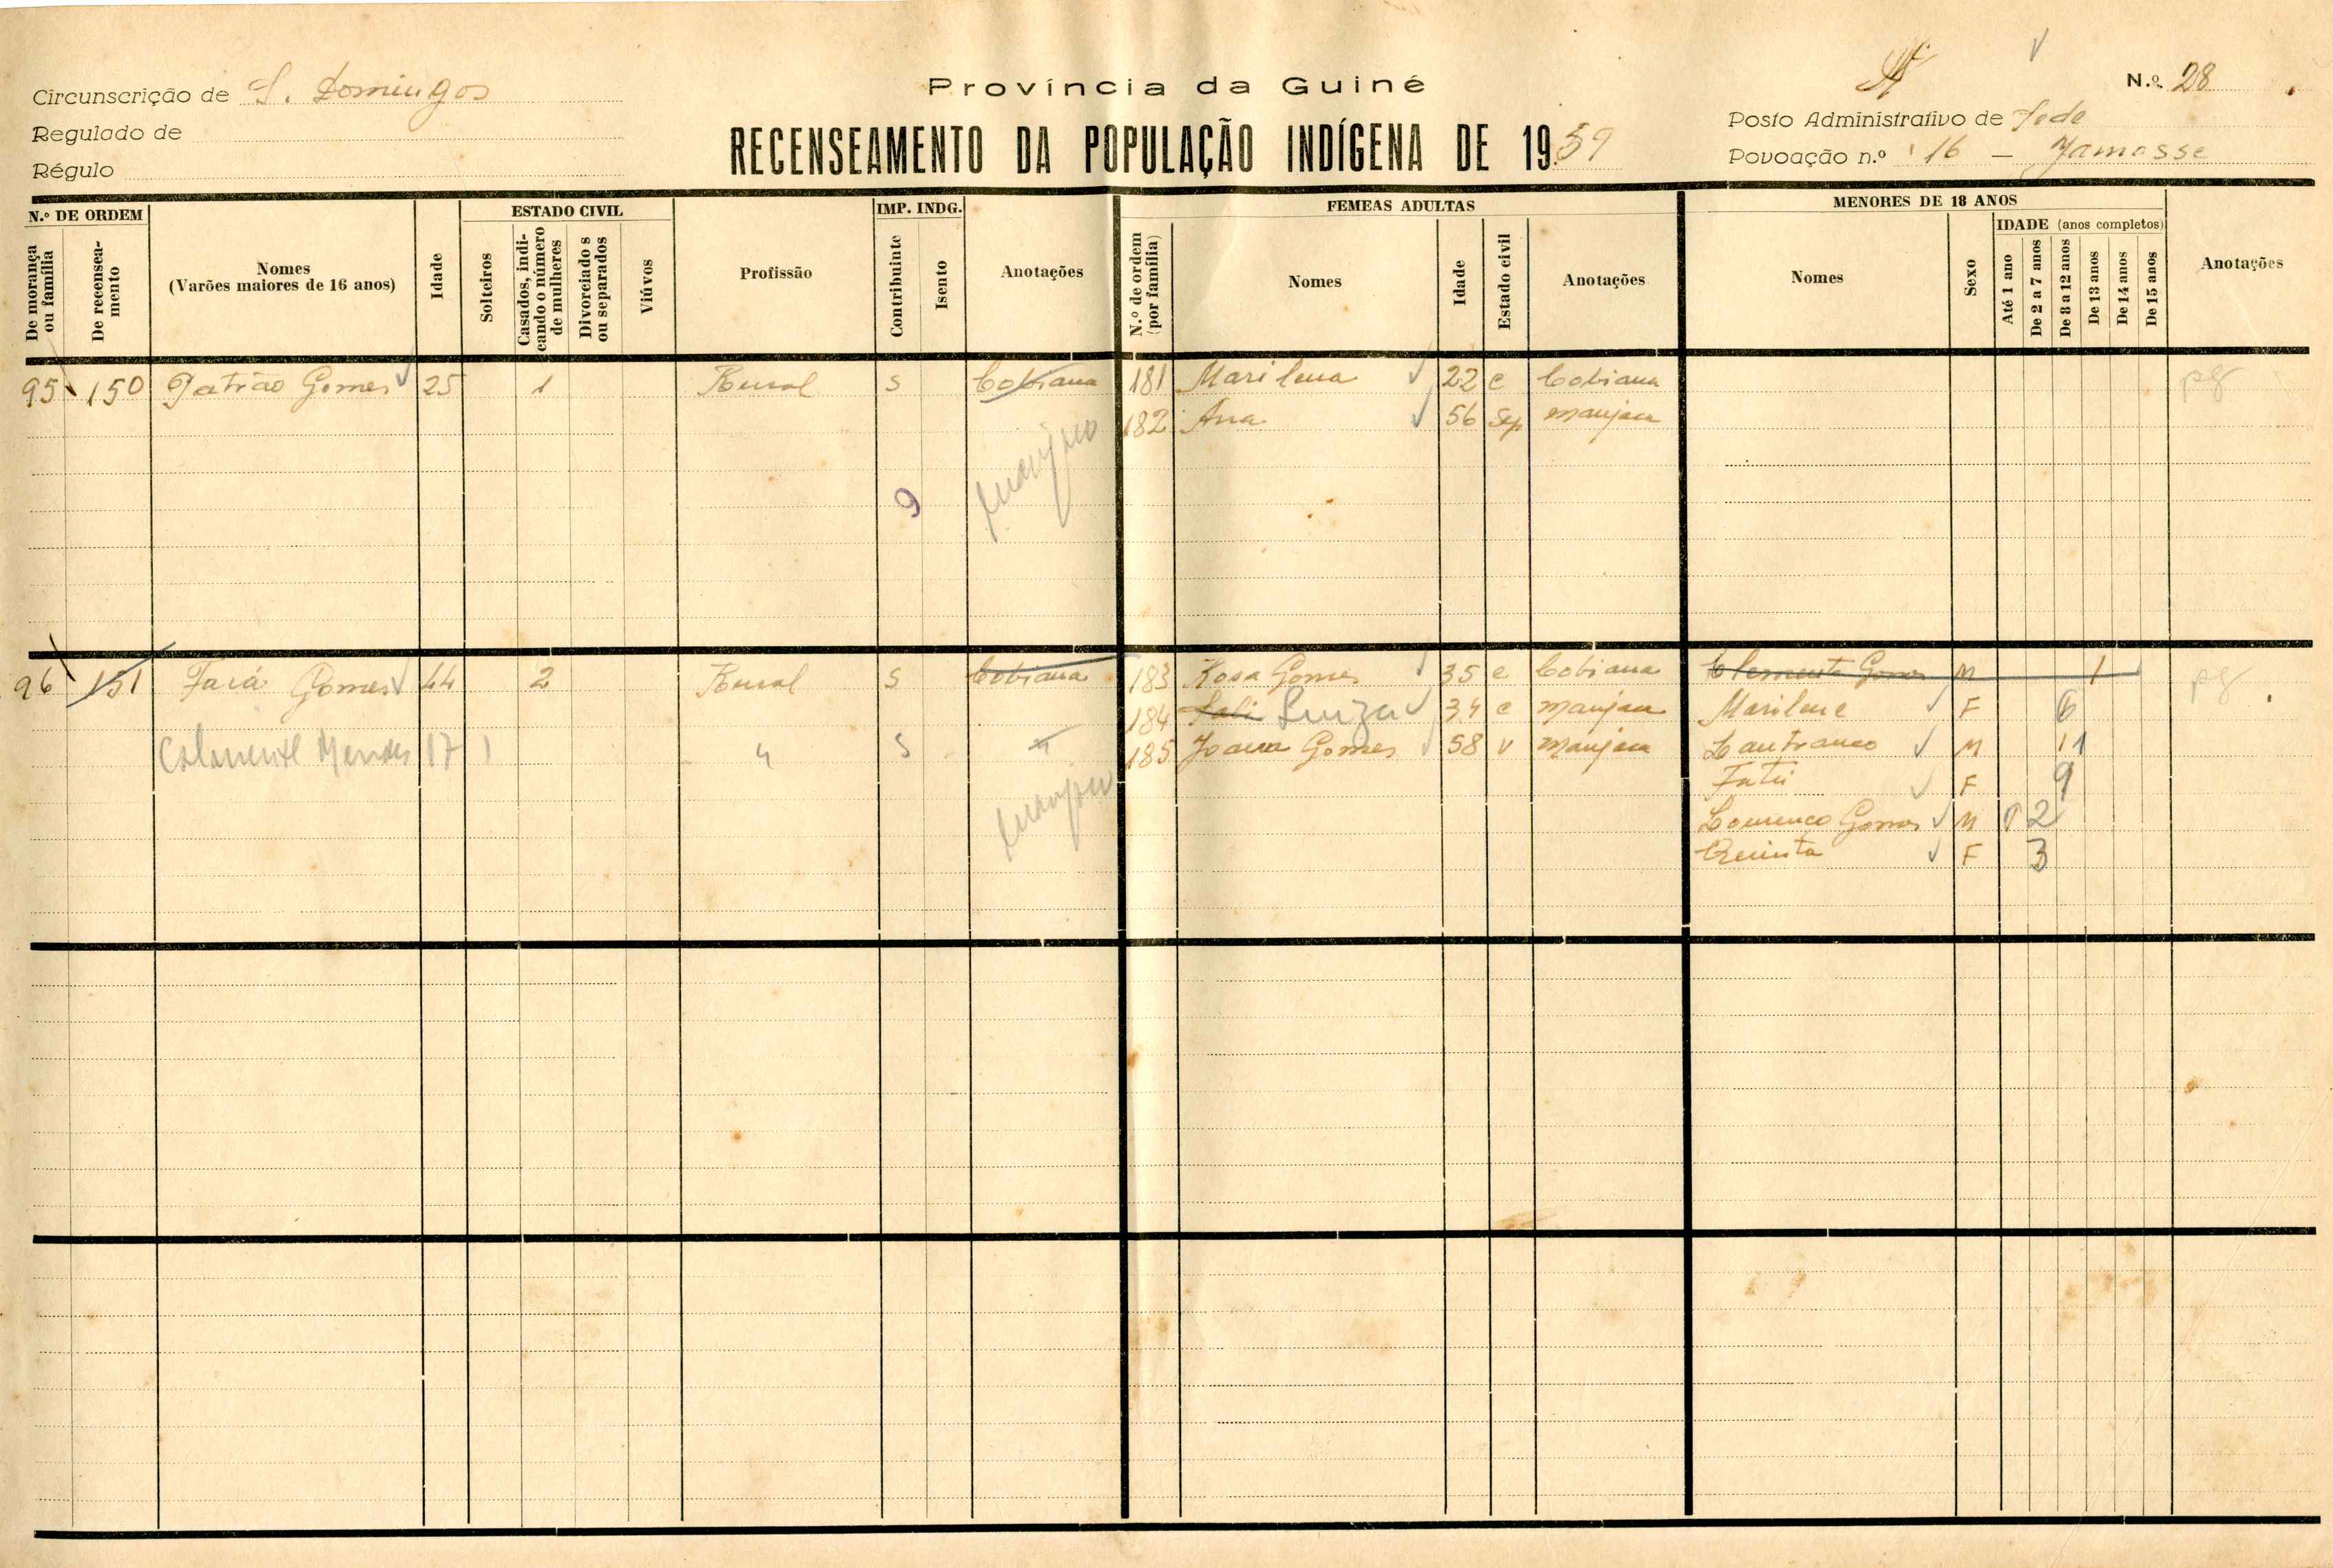 Província da Guiné
N.º 28
Circunscrição de S. Domingos
Regulado de
Régulo
RECENSEAMENTO DA POPULAÇÃO INDÍGENA DE 1959
Posto Administrativo de Sede
Povoação n.º 16 — Jamasse
N.º DE ORDEM
De morança ou família
De recenseamento
Nomes
(Varões maiores de 16 anos)
Idade
ESTADO CIVIL
Solteiros
Casados, indicando o número de mulheres
Divorciados ou separados
Viúvos
Profissão
IMP. INDG.
Contribuinte
Isento
Anotações
FEMEAS ADULTAS
N.º de ordem (por família)
Nomes
Idade
Estado civil
Anotações
MENORES DE 18 ANOS
Nomes
Sexo
IDADE (anos completos)
Até 1 ano
De 2 a 7 anos
De 8 a 12 anos
De 13 anos
De 14 anos
De 15 anos
Anotações
95 150 Patrão Gomes 25 1 Rural S Cobiana 181 Marilena 22 c Cobiana pg
182 Ana 56 Sep manjaca
manjaco
9
96 151 Fará Gomes 44 2 Rural S Cobiana 183 Rosa Gomes 35 c Cobiana Clemente Gomes M 1 pg
184 Sali Luiza 34 c manjaca Marilene F 6
Mendes 17 1 " S 185 Joana Gomes 58 v manjaca Lantranco M 11
manjaco
Fatú F 9
Lourenco Gomes M 2
Quinta F 3